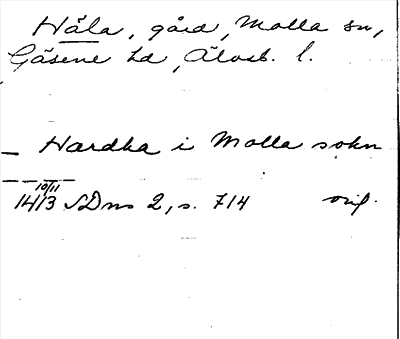 Håla, gård, Molla sn,
Gäsene hd, Älvsb. l.
Hardha i Molla sokn
10/11
1413 SDns 2, s. 714 orig.